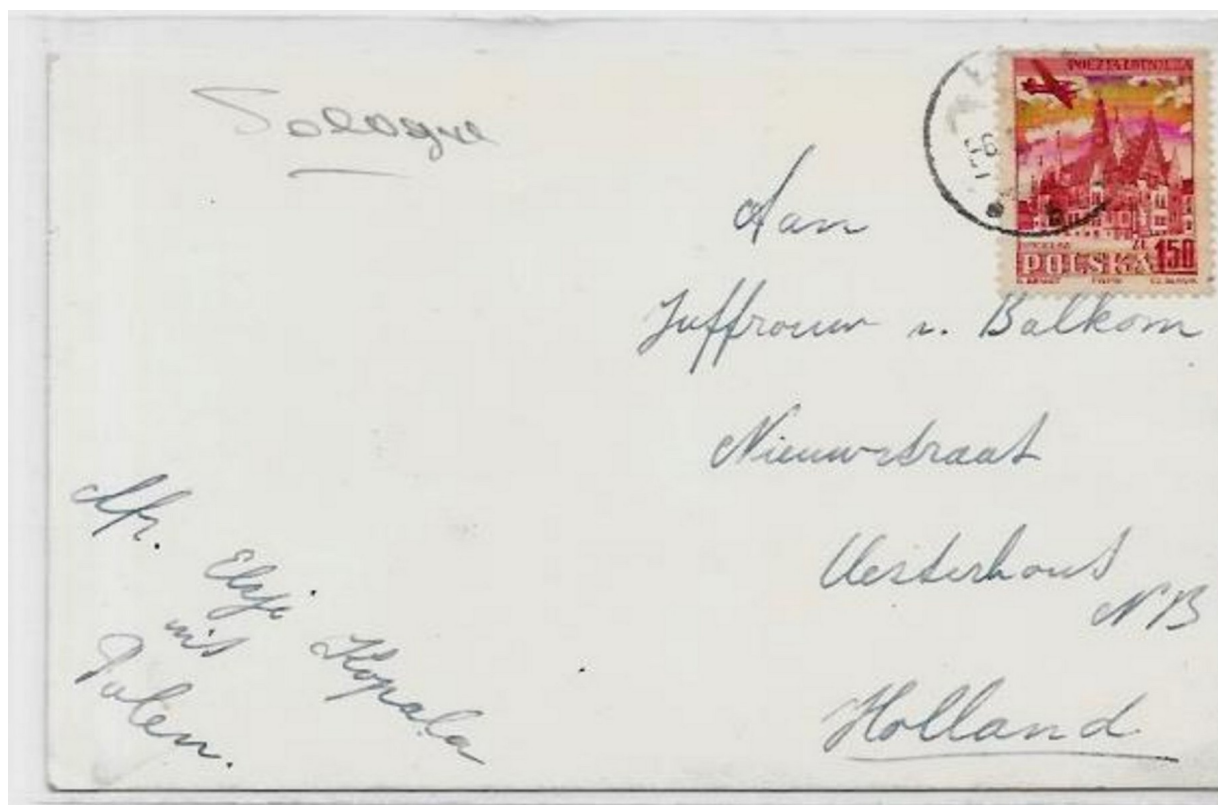 POCZTA LOTNICZA
POLSKA ZŁ 150
Aan
Juffrouw v. Balkom
Nieuwstraat
Oesterhout
NB
Holland
Afz. Elsje Kopala
uit
Polen.